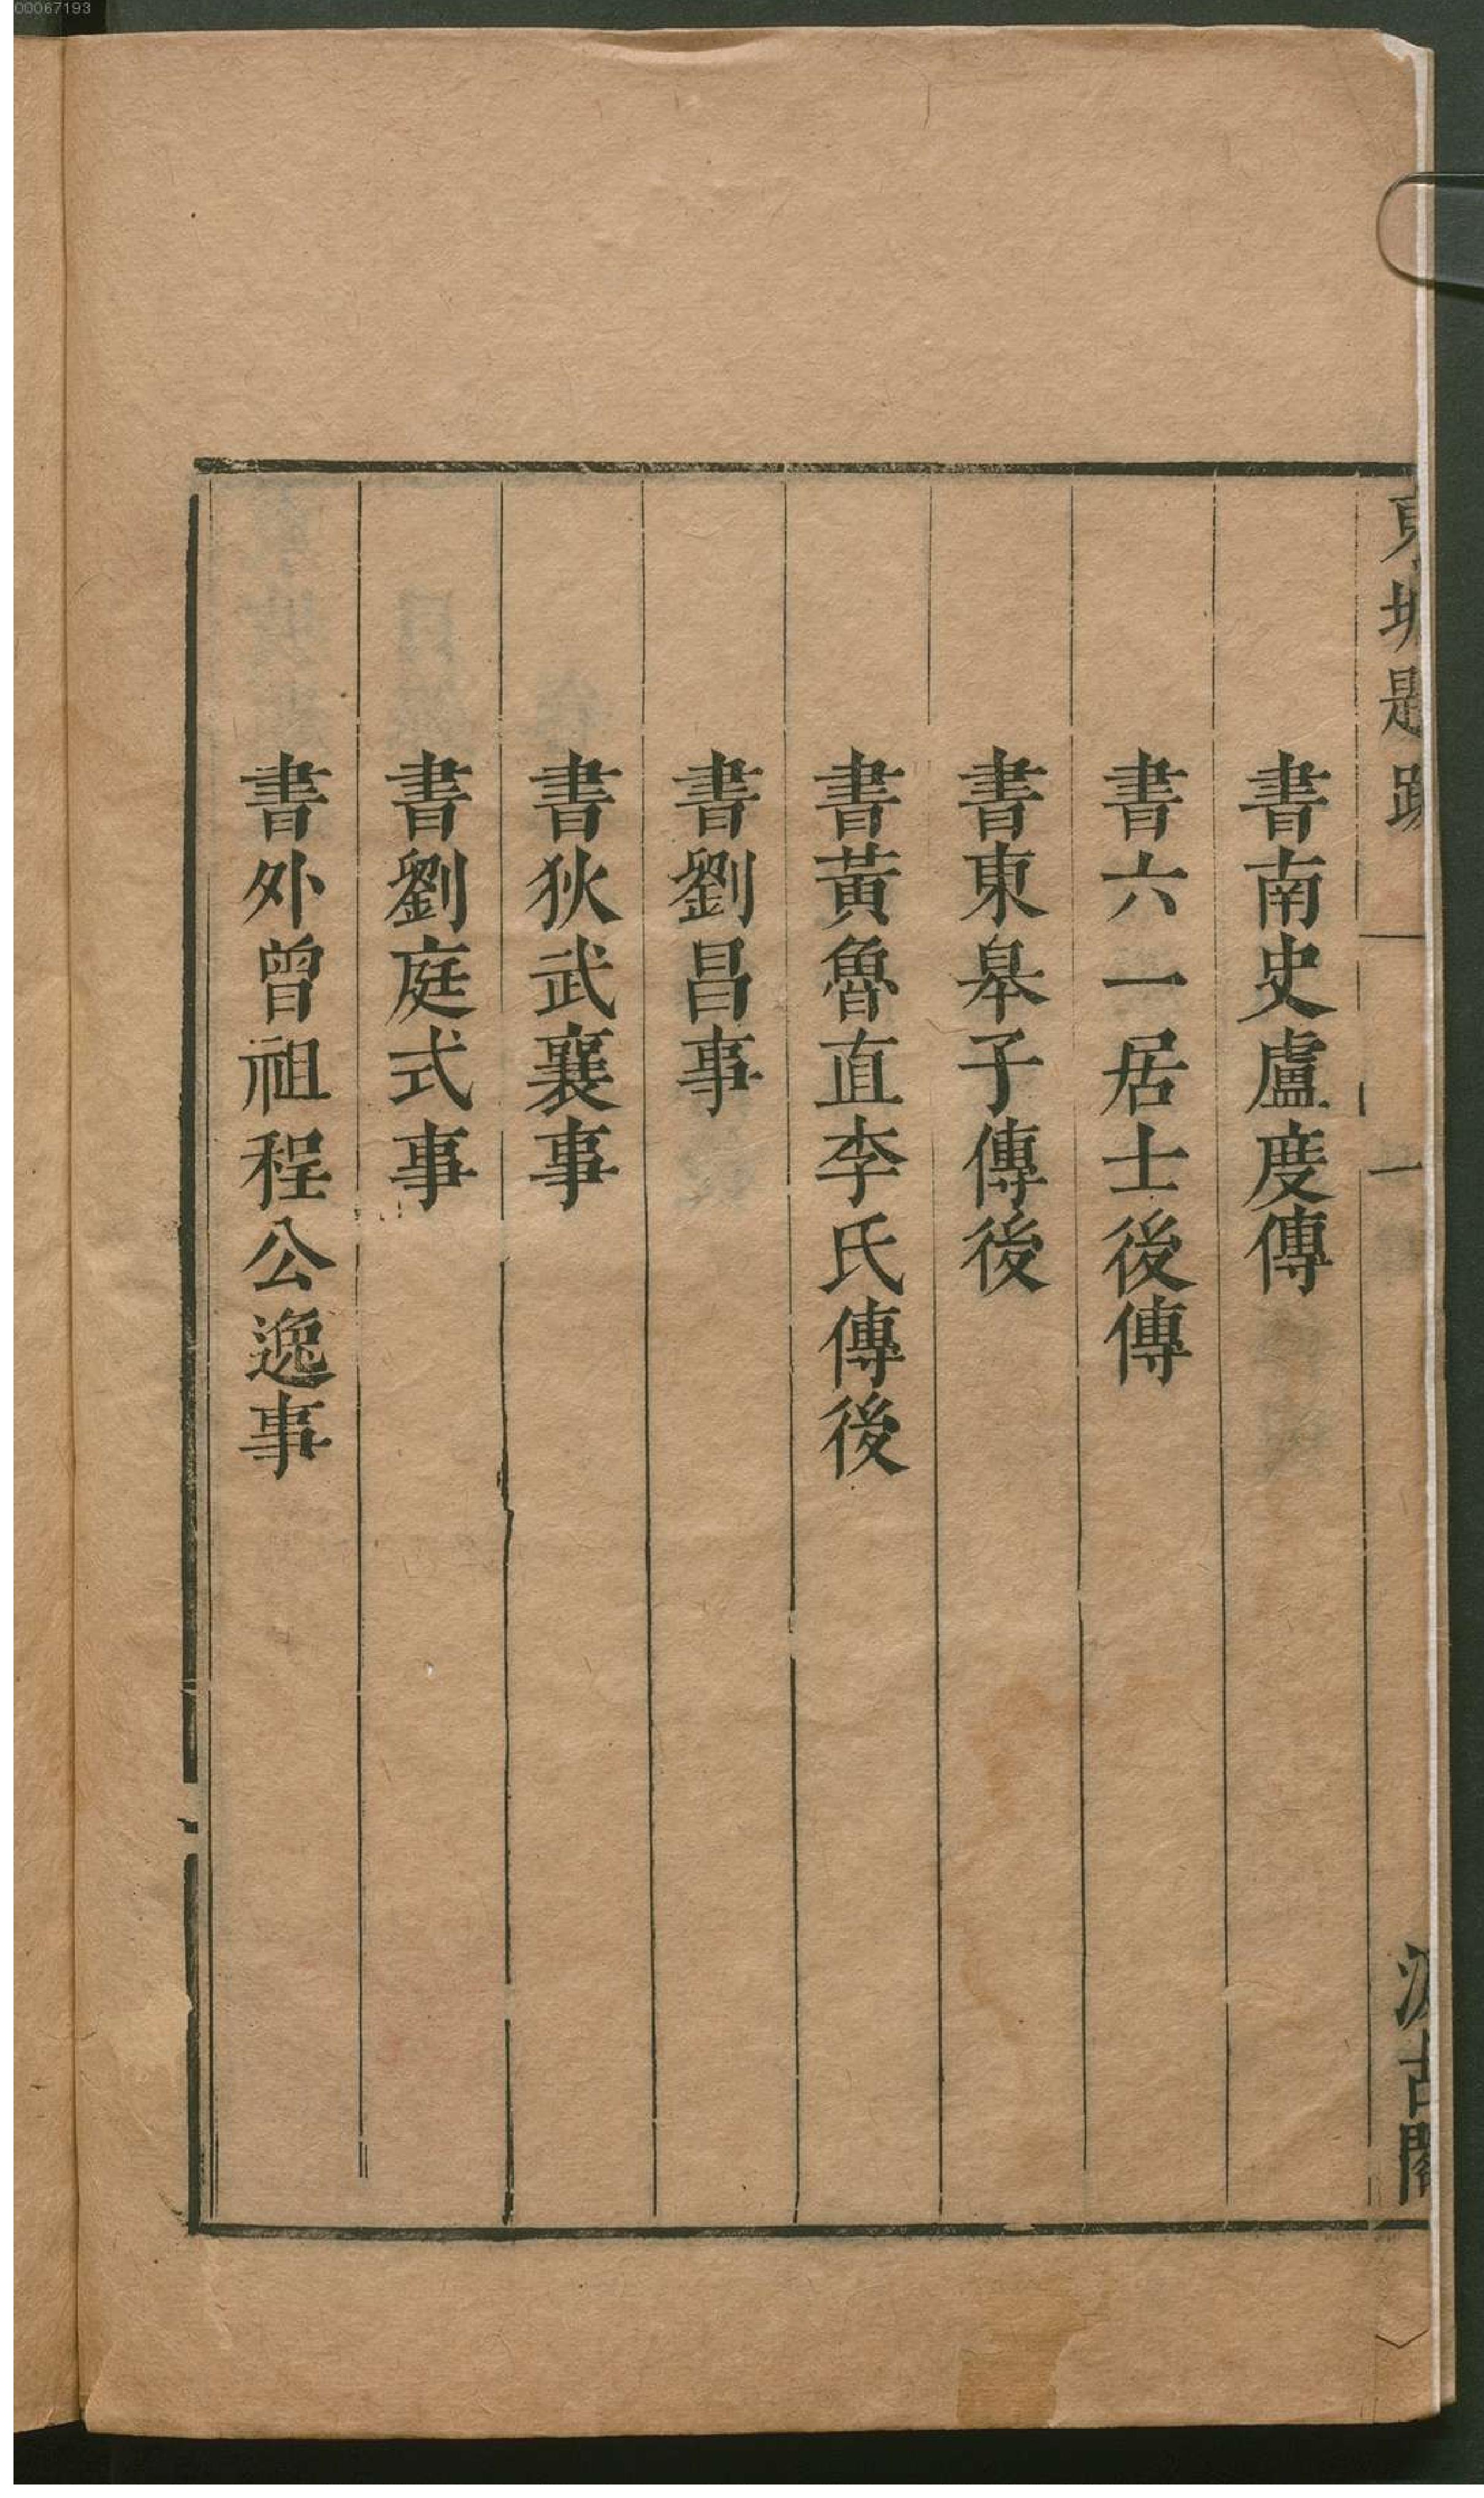 00067193
東坡題跋
一
汲古閣
書南史盧度傳
書六一居士後傳
書東皋子傳後
書黃魯直李氏傳後
書劉昌事
書狄武襄事
書劉庭式事
書外曾祖程公逸事